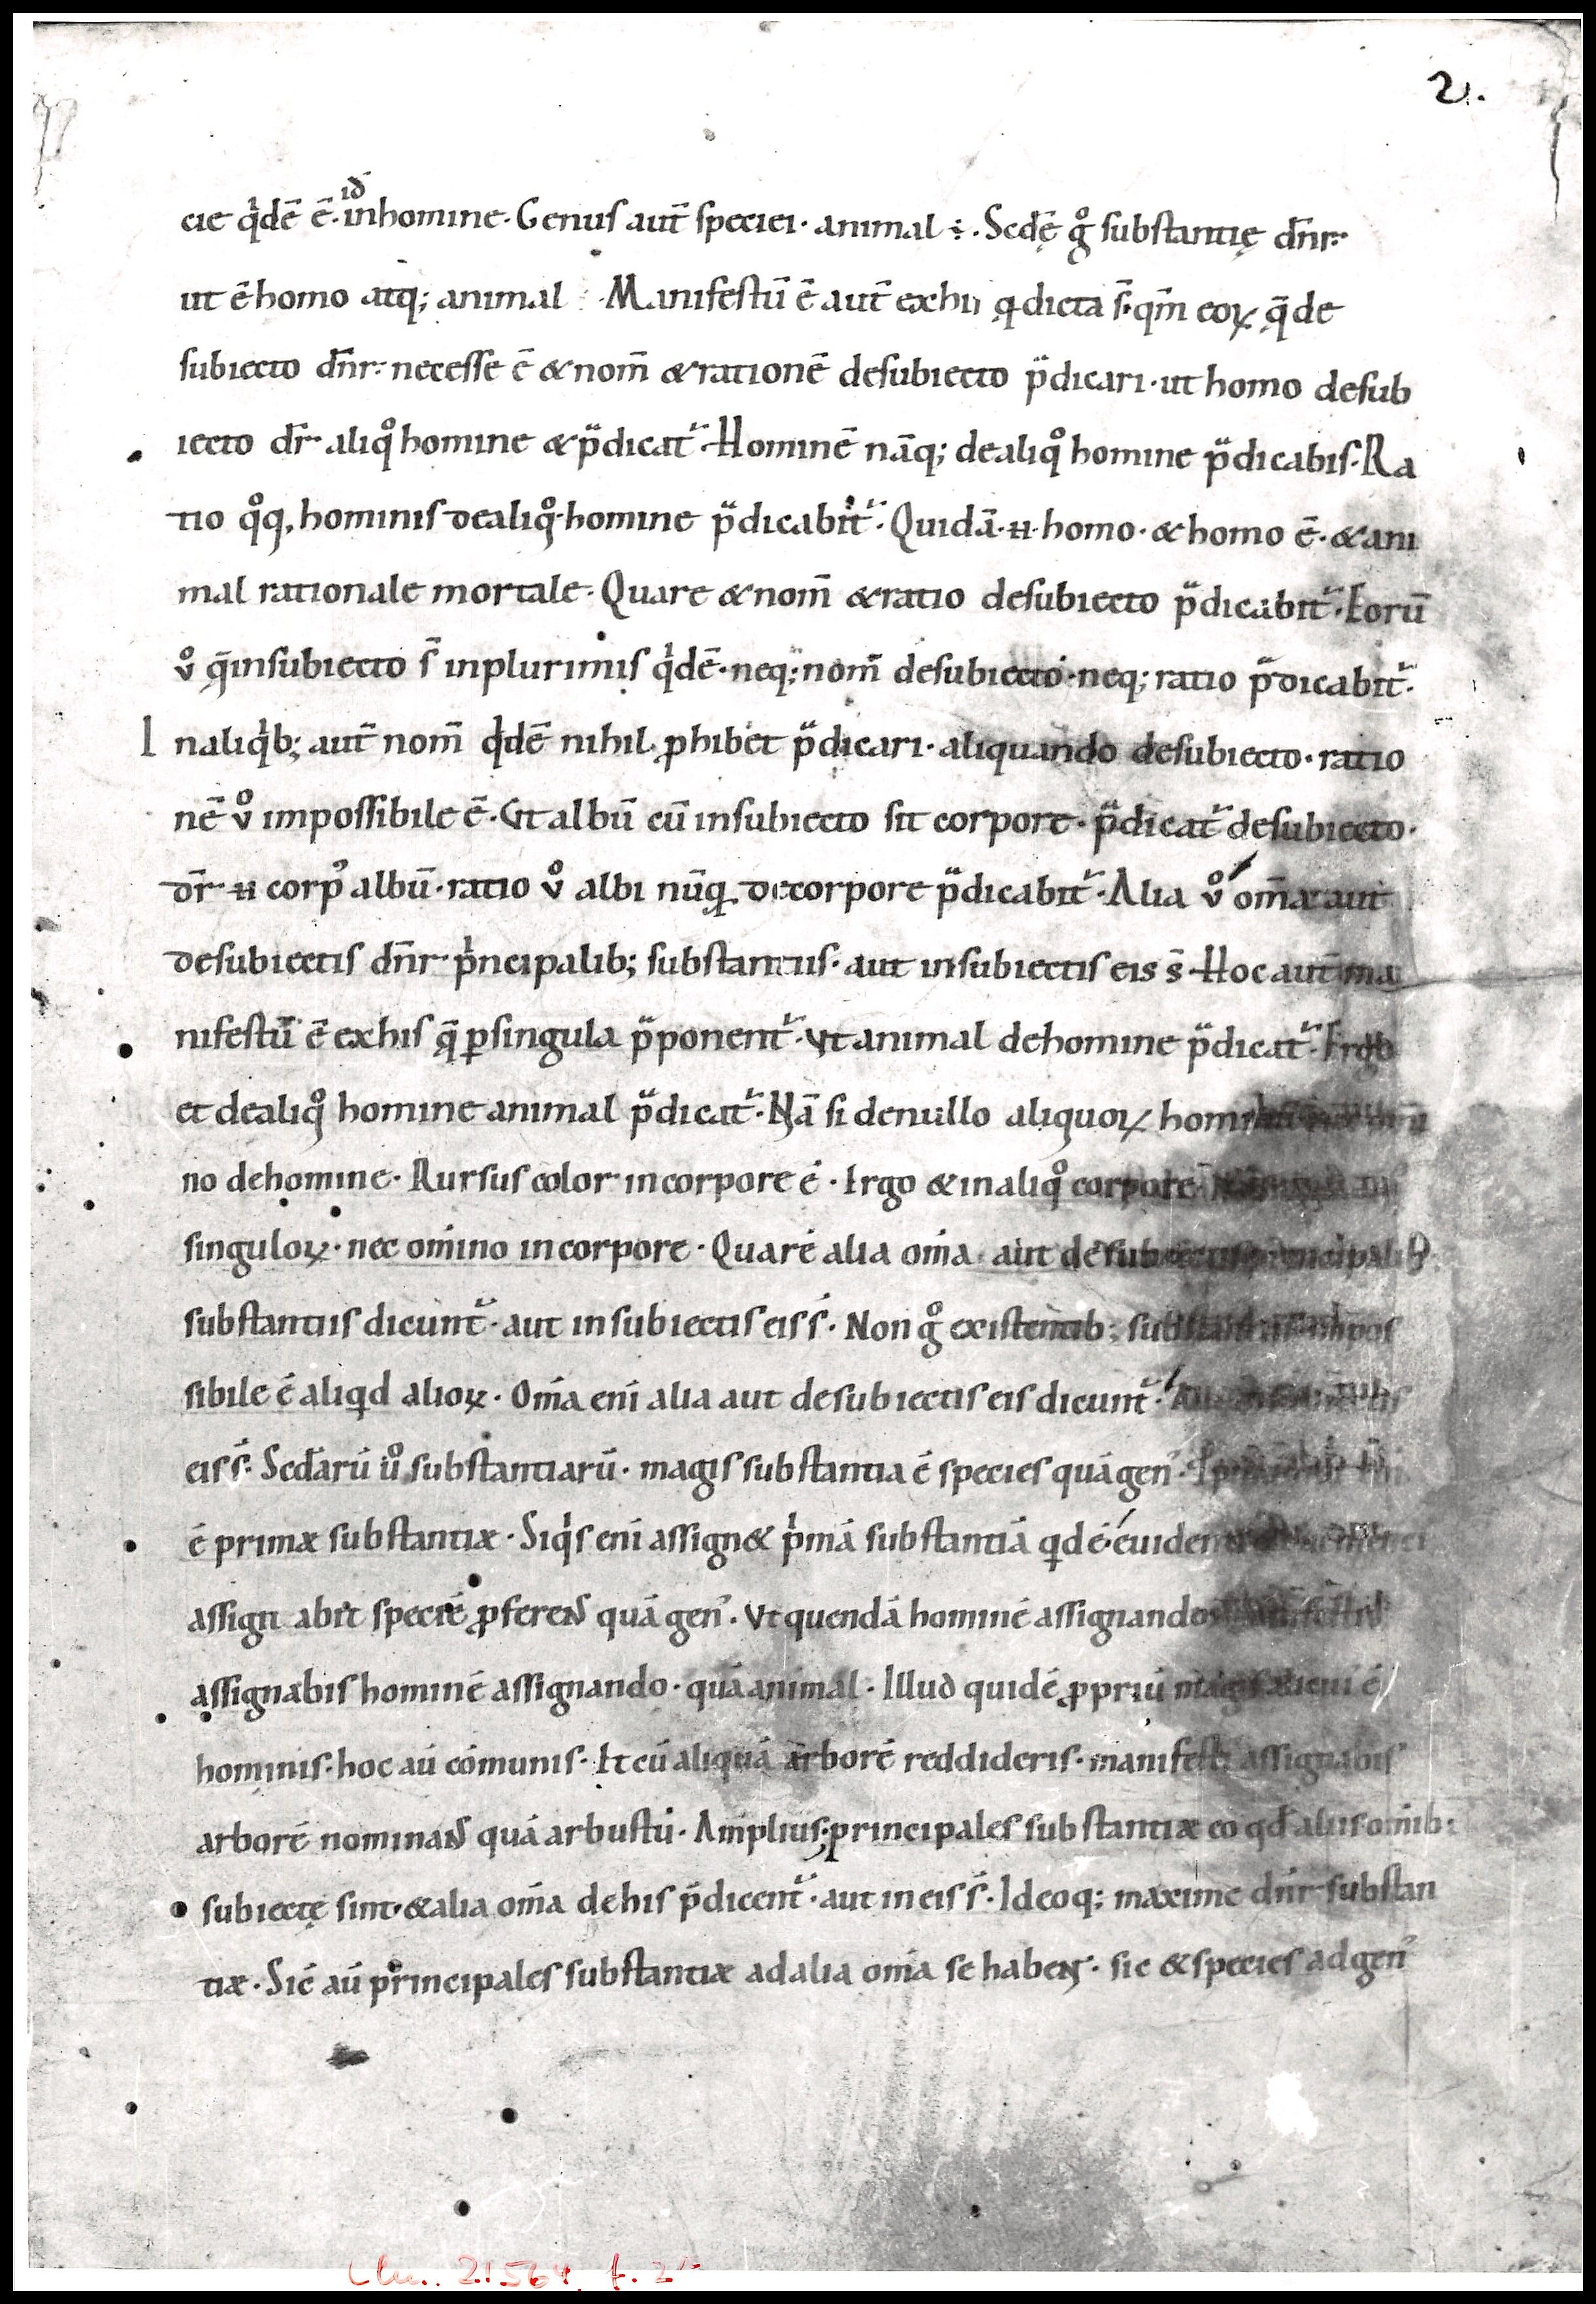 2.
id
cie q̇dē ē· inhomine· Genus aut̄ speciei· animal ÷· Scdę̄ g̊ substantię dn̄r·
ut ē homo atq; animal · Manifestū ē aut̄ exhis q̨dicta s̄· qm̄ eoꝝ q̄ de
subiecto dn̄r· necesse ē & nom̄ & rationē desubiecto p̄dicari· ut homo desub
iecto dr̄· aliq̊ homine & p̄dicat᷑· Hominē nāq; dealiq̊ homine p̄dicabis· Ra
tio q̊q, hominis dealiq̊· homine p̄dicabit᷑· Quidā· n̄· homo· & homo ē· & ani
mal rationale mortale· Quare & nom̄ & ratio desubiecto p̄dicabit᷑· Eorū
v̊ q̄ insubiecto s̄ inplurimis q̇dē· neq; nom̄ desubiecto· neq; ratio p̄dicabit᷑·
I naliq̇b; aut̄ nom̄ q̇dē nihil ꝓhibet p̄dicari· aliquando desubiecto· ratio
nē v̊ impossibile ē· Ut albū cū insubiecto sit corpore· p̄dicat᷑ desubiecto·
dr̄ n̄ corp᷒ albū· ratio v̊ albi nūꝗ decorpore p̄dicabit᷑· Alia v̊ om̄a aut
desubiectis dn̄r· ṗncipalib; substantiis· aut insubiectis eis s̄· Hoc aut̄ ma
nifestū ē exhis q̄ ꝑsingula p̄ponent᷑· Ut animal dehomine p̄dicat᷑· Ergo
et dealiq̊ homine animal p̄dicat᷑· Nā si denullo aliquoꝝ
no dehomine· Rursus color incorpore ē· Ergo & inaliq̊ corpore·
singuloꝝ· nec om̄ino incorpore· Quarē alia om̄a· aut de
substantiis dicunt᷑· aut insubiectis eis s̄· Non g̊ existentib;
sibile ē aliqd alioꝝ· Om̄a enī alia aut desubiectis eis dicunt᷑·
eis s̄· Scdarū ů substantiarū· magis substantia ē species quā gen᷒·
ē primæ substantiæ· Siq̇s enī assign& ṗmā substantiā qdē·
assign abit speciē ꝓferens quā gen᷒· Ut quendā hominē assignando
assignabis hominē assignando· quā animal· Illud quidē ꝓpriū magis alicui ē
hominis· hoc aū cōmunis· Et cū aliquā arborē reddideris· manifesti assignabis
arborē nominans quā arbustū· Amplius· principales substantiæ eo qd aliis om̄ib;
subiectę sint· & alia om̄a dehis p̄dicent᷑· aut ineis s̄· Ideoq; maxime dn̄r substan
tiæ· Sic aū principales substantiæ adalia om̄a se habent· sic & species adgen᷒
Clm. 21564, f. 2r